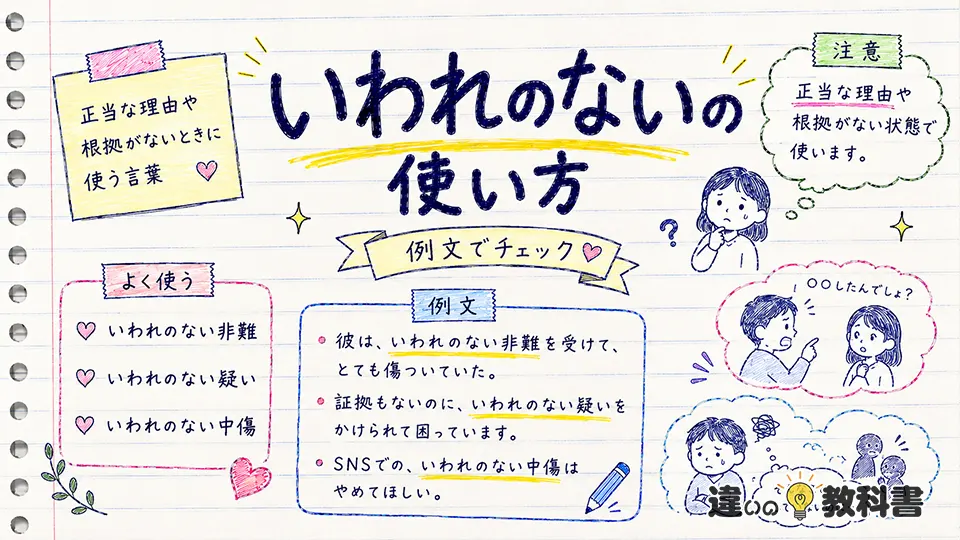 いわれのないの
使い方
例文でチェック
正当な理由や
根拠がないときに
使う言葉
注意
正当な理由や
根拠がない状態で
使います。
?
よく使う
いわれのない非難
いわれのない疑い
いわれのない中傷
例文
彼は、いわれのない非難を受けて、
とても傷ついていた。
証拠もないのに、いわれのない疑いを
かけられて困っています。
SNSでの、いわれのない中傷は
やめてほしい。
〇〇したんでしょ?
違いの教科書